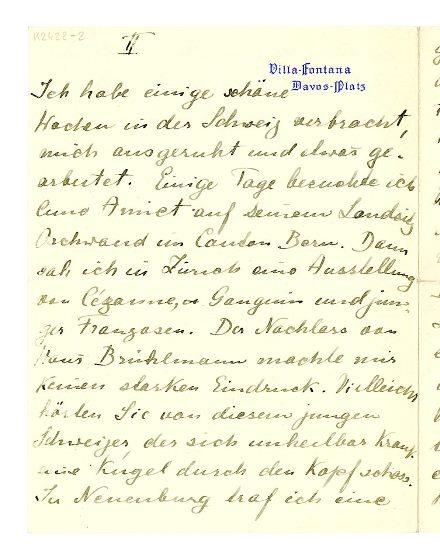 M2422-2
II
Villa-Fontana
Davos-Platz
Ich habe einige schöne
Wochen in der Schweiz verbracht,
mich ausgeruht und etwas ge-
arbeitet. Einige Tage besuchte ich
Cuno Amiet auf seinem Landsitz
Oschwand im Canton Bern. Dann
sah ich in Zürich eine Ausstellung
von Cézanne, Gauguin und jun-
ger Franzosen. Der Nachlass von
Hans Brühlmann machte mir
keinen starken Eindruck. Vielleicht
hörten Sie von diesem jungen
Schweizer der sich unheilbar krank
eine Kugel durch den Kopf schoss.
In Neuenburg traf ich eine